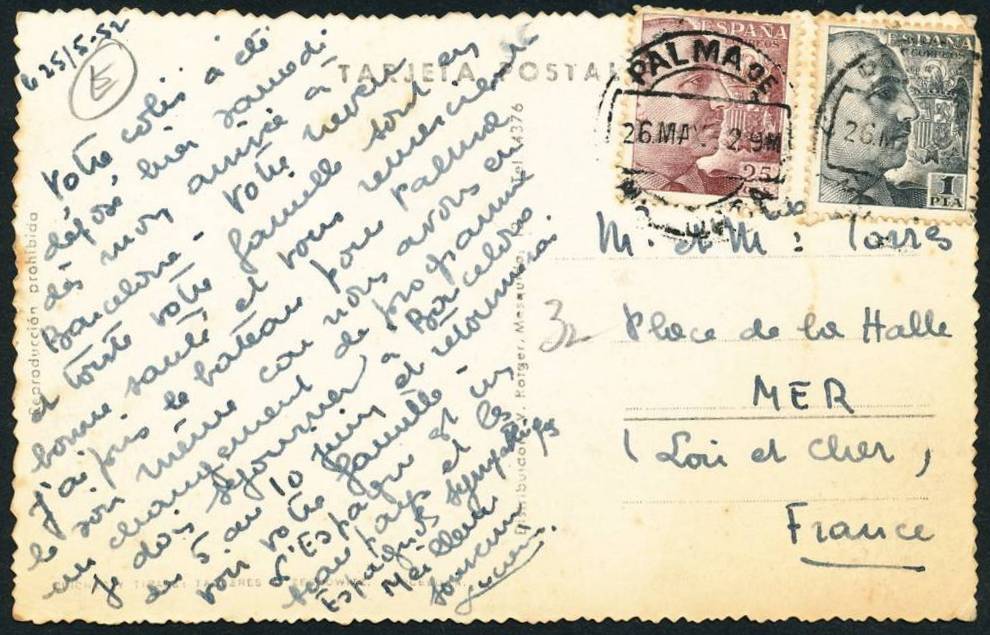 le 25/5-52
E
Votre colis a été
déposé hier samedi
dès mon arrivée à
Barcelone - Votre neveu
et toute votre famille sont en
bonne santé et vous remercient
J'ai pris le bateau pour Palma
le soir même car nous avons eu
un changement de programme
Je dois séjourner à Barcelone
du 5 au 10 juin et retournerai
voir votre famille -
L'Espagne est un
beau pays et les
Espagnols sympathiques
Meilleur
souvenir
TARJETA POSTAL
Reproducción prohibida
Distribuidor: V. Rotger, Mesquida,
Tel. 4376
ESPAÑA
CORREOS
25
PALMA DE
26.MAY 2.9M
ESPAÑA
CORREOS
1
PTA
26.M
M. et M : Torres
32 Place de la Halle
MER
(Loir et Cher)
France